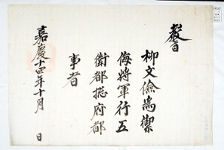 教旨
柳文儉為禦
侮將軍行五
衛都摠府都
事者
嘉慶十四年十月 日